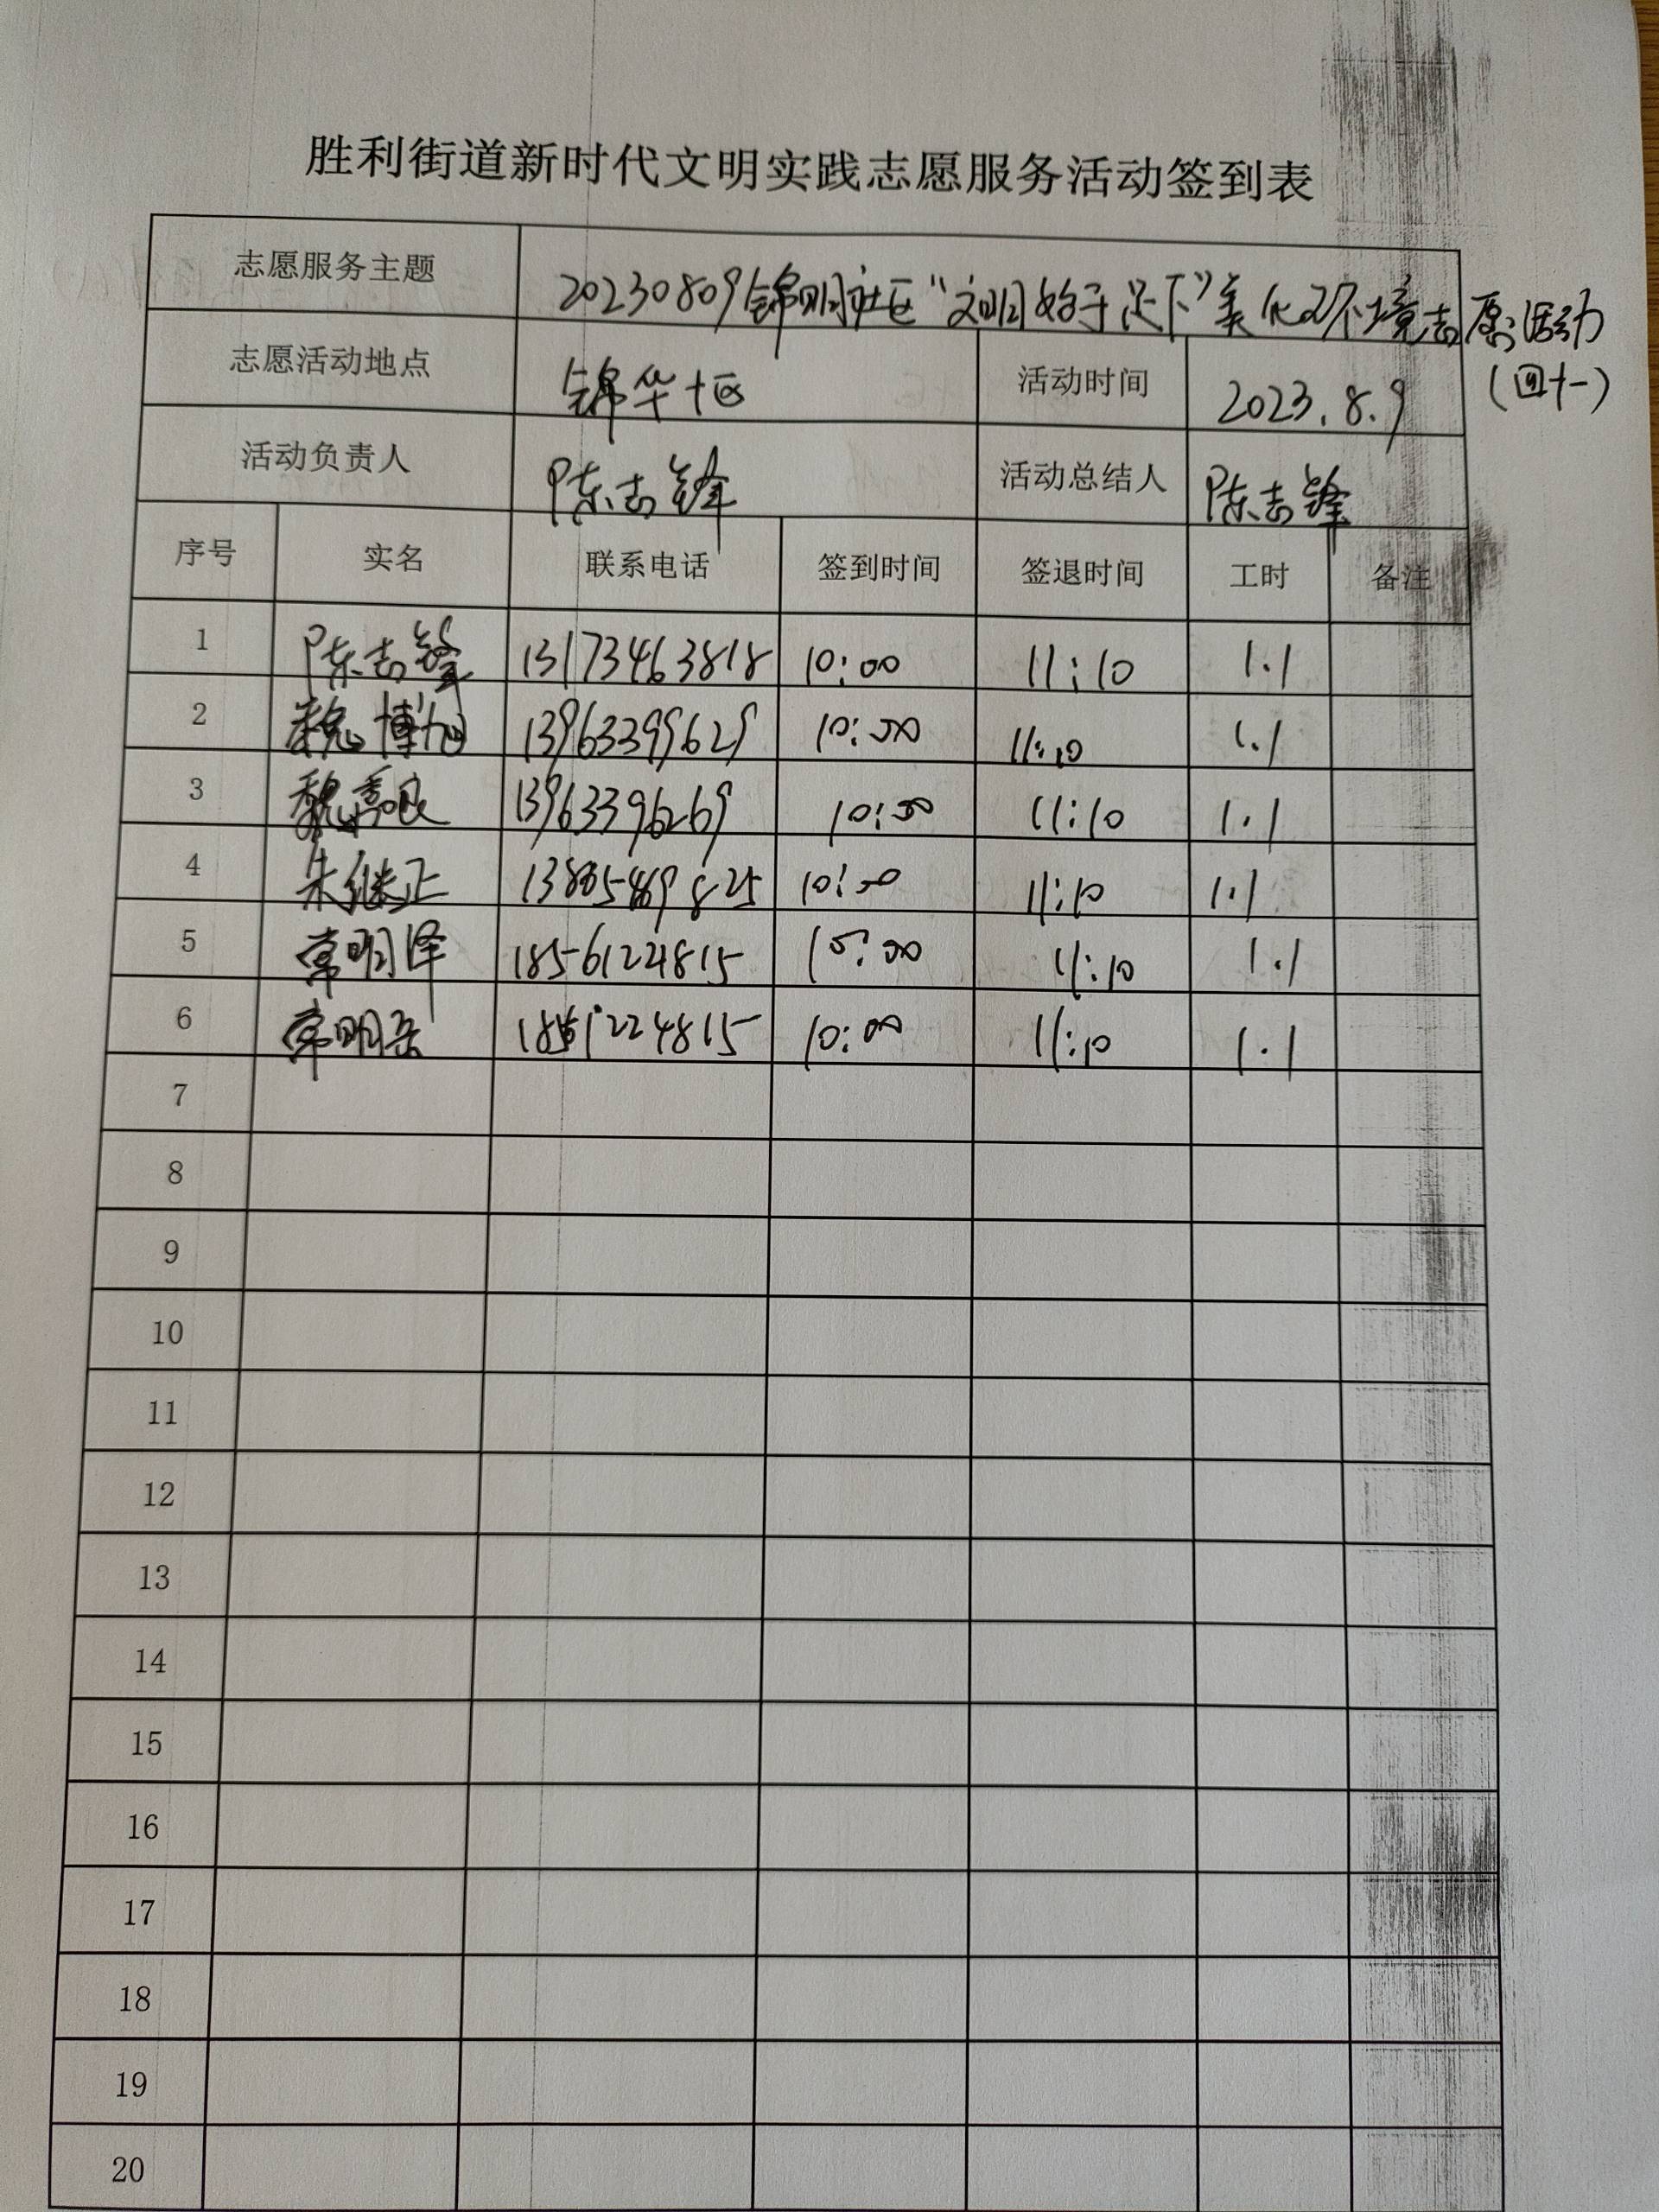 胜利街道新时代文明实践志愿服务活动签到表
志愿服务主题 20230809锦明社区“文明始于足下”美化环境志愿活动
(四十一)
志愿活动地点 锦华十区 活动时间 2023.8.9
活动负责人 陈志锋 活动总结人 陈志锋
序号 实名 联系电话 签到时间 签退时间 工时 备注
1 陈志锋 13173463818 10:00 11:10 1.1
2 魏博旭 13963399629 10:00 11:10 1.1
3 魏 13963396269 10:00 11:10 1.1
4 朱继正 10:00 11:10 1.1
5 常明泽 18561224815 10:00 11:10 1.1
6 常明岳 18561224815 10:00 11:10 1.1
7
8
9
10
11
12
13
14
15
16
17
18
19
20